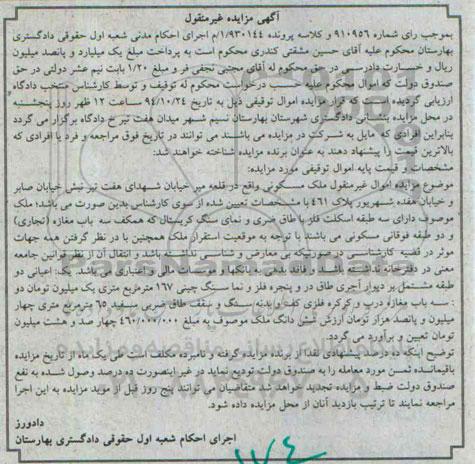 آگهی مزایده غیرمنقول
بموجب رای شماره ۹۱۰۹۵۶ و کلاسه پرونده ۱/۹۳۰۱۴۴م اجرای احکام مدنی شعبه اول حقوقی دادگستری
بهارستان محکوم علیه آقای حسین مشقتی کندری محکوم است به پرداخت مبلغ یک میلیارد و پانصد میلیون
ریال و خسارت دادرسی در حق محکوم له آقای مجتبی نجفی فر و مبلغ ۱/۲۰ بابت نیم عشر دولتی در حق
صندوق دولت که اموال محکوم علیه حسب درخواست محکوم له توقیف و توسط کارشناس منتخب دادگاه
ارزیابی گردیده است که قرار مزایده اموال توقیفی ذیل به تاریخ ۹۴/۱۰/۲۴ ساعت ۱۲ ظهر روز پنجشنبه
در محل مزایده بنشانی دادگستری شهرستان بهارستان نسیم شهر میدان هفت تیر خ دادگاه برگزار می گردد
بنابراین افرادی که مایل به شرکت در مزایده می باشند می توانند در تاریخ فوق مراجعه و فرد یا افرادی که
بالاترین قیمت را پیشنهاد دهند به عنوان برنده مزایده شناخته خواهند شد:
مشخصات و قیمت پایه اموال توقیفی مورد مزایده:
موضوع مزایده اموال غیرمنقول ملک مسکونی واقع در قلعه میر خیابان شهدای هفت تیر نبش خیابان صابر
و خیابان هفده شهریور پلاک ۴۶۱ با مشخصات تعیین شده از سوی کارشناس بدین صورت می باشد؛ ملک
موصوف دارای سه طبقه اسکلت فلز با طاق ضربی و نمای سنگ کریستال که همکف سه باب مغازه (تجاری)
و دو طبقه فوقانی مسکونی می باشند با توجه به موقعیت استقرار ملک همچنین با در نظر گرفتن همه جهات
موثر در قضیه کارشناسی در صورتیکه بی معارض و شناسی نداشته باشد و انتقال آن از نظر قوانین جامعه
معنی در دفترخانه نداشته باشد و فاقد بدهی به بانکها و موسسات مالی و اعتباری می باشد. یک: اعیانی دو
طبقه مشتمل بر دیوار آجری طاق در و پنجره فلز و نما سنگ چینی ۱۶۷ مترمربع متری یک میلیون تومان دو
: سه باب مغازه درب و کرکره فلزی کف و بدنه سنگ و سقف طاق ضربی سفید ۶۵ مترمربع متری چهار
میلیون و پانصد هزار تومان ارزش شش دانگ ملک موصوف به مبلغ ۴۶۰/۰۰۰/۰۰۰ چهار صد و شصت میلیون
تومان تعیین و برآورد می گردد.
توضیح اینکه ده درصد پیشنهادی نقدا از برنده مزایده گرفته و نامبرده مکلف است طی یک ماه از تاریخ مزایده
باقیمانده ثمن مورد معامله را به صندوق دولت تودیع نماید در غیر اینصورت ده درصد وصول شده به نفع
صندوق دولت ضبط و مزایده تجدید خواهد شد متقاضیان می توانند پنج روز قبل از موید مزایده به این اجرا
مراجعه نمایند تا ترتیب بازدید آنان از محل مزایده داده شود.
دادورز
اجرای احکام شعبه اول حقوقی دادگستری بهارستان